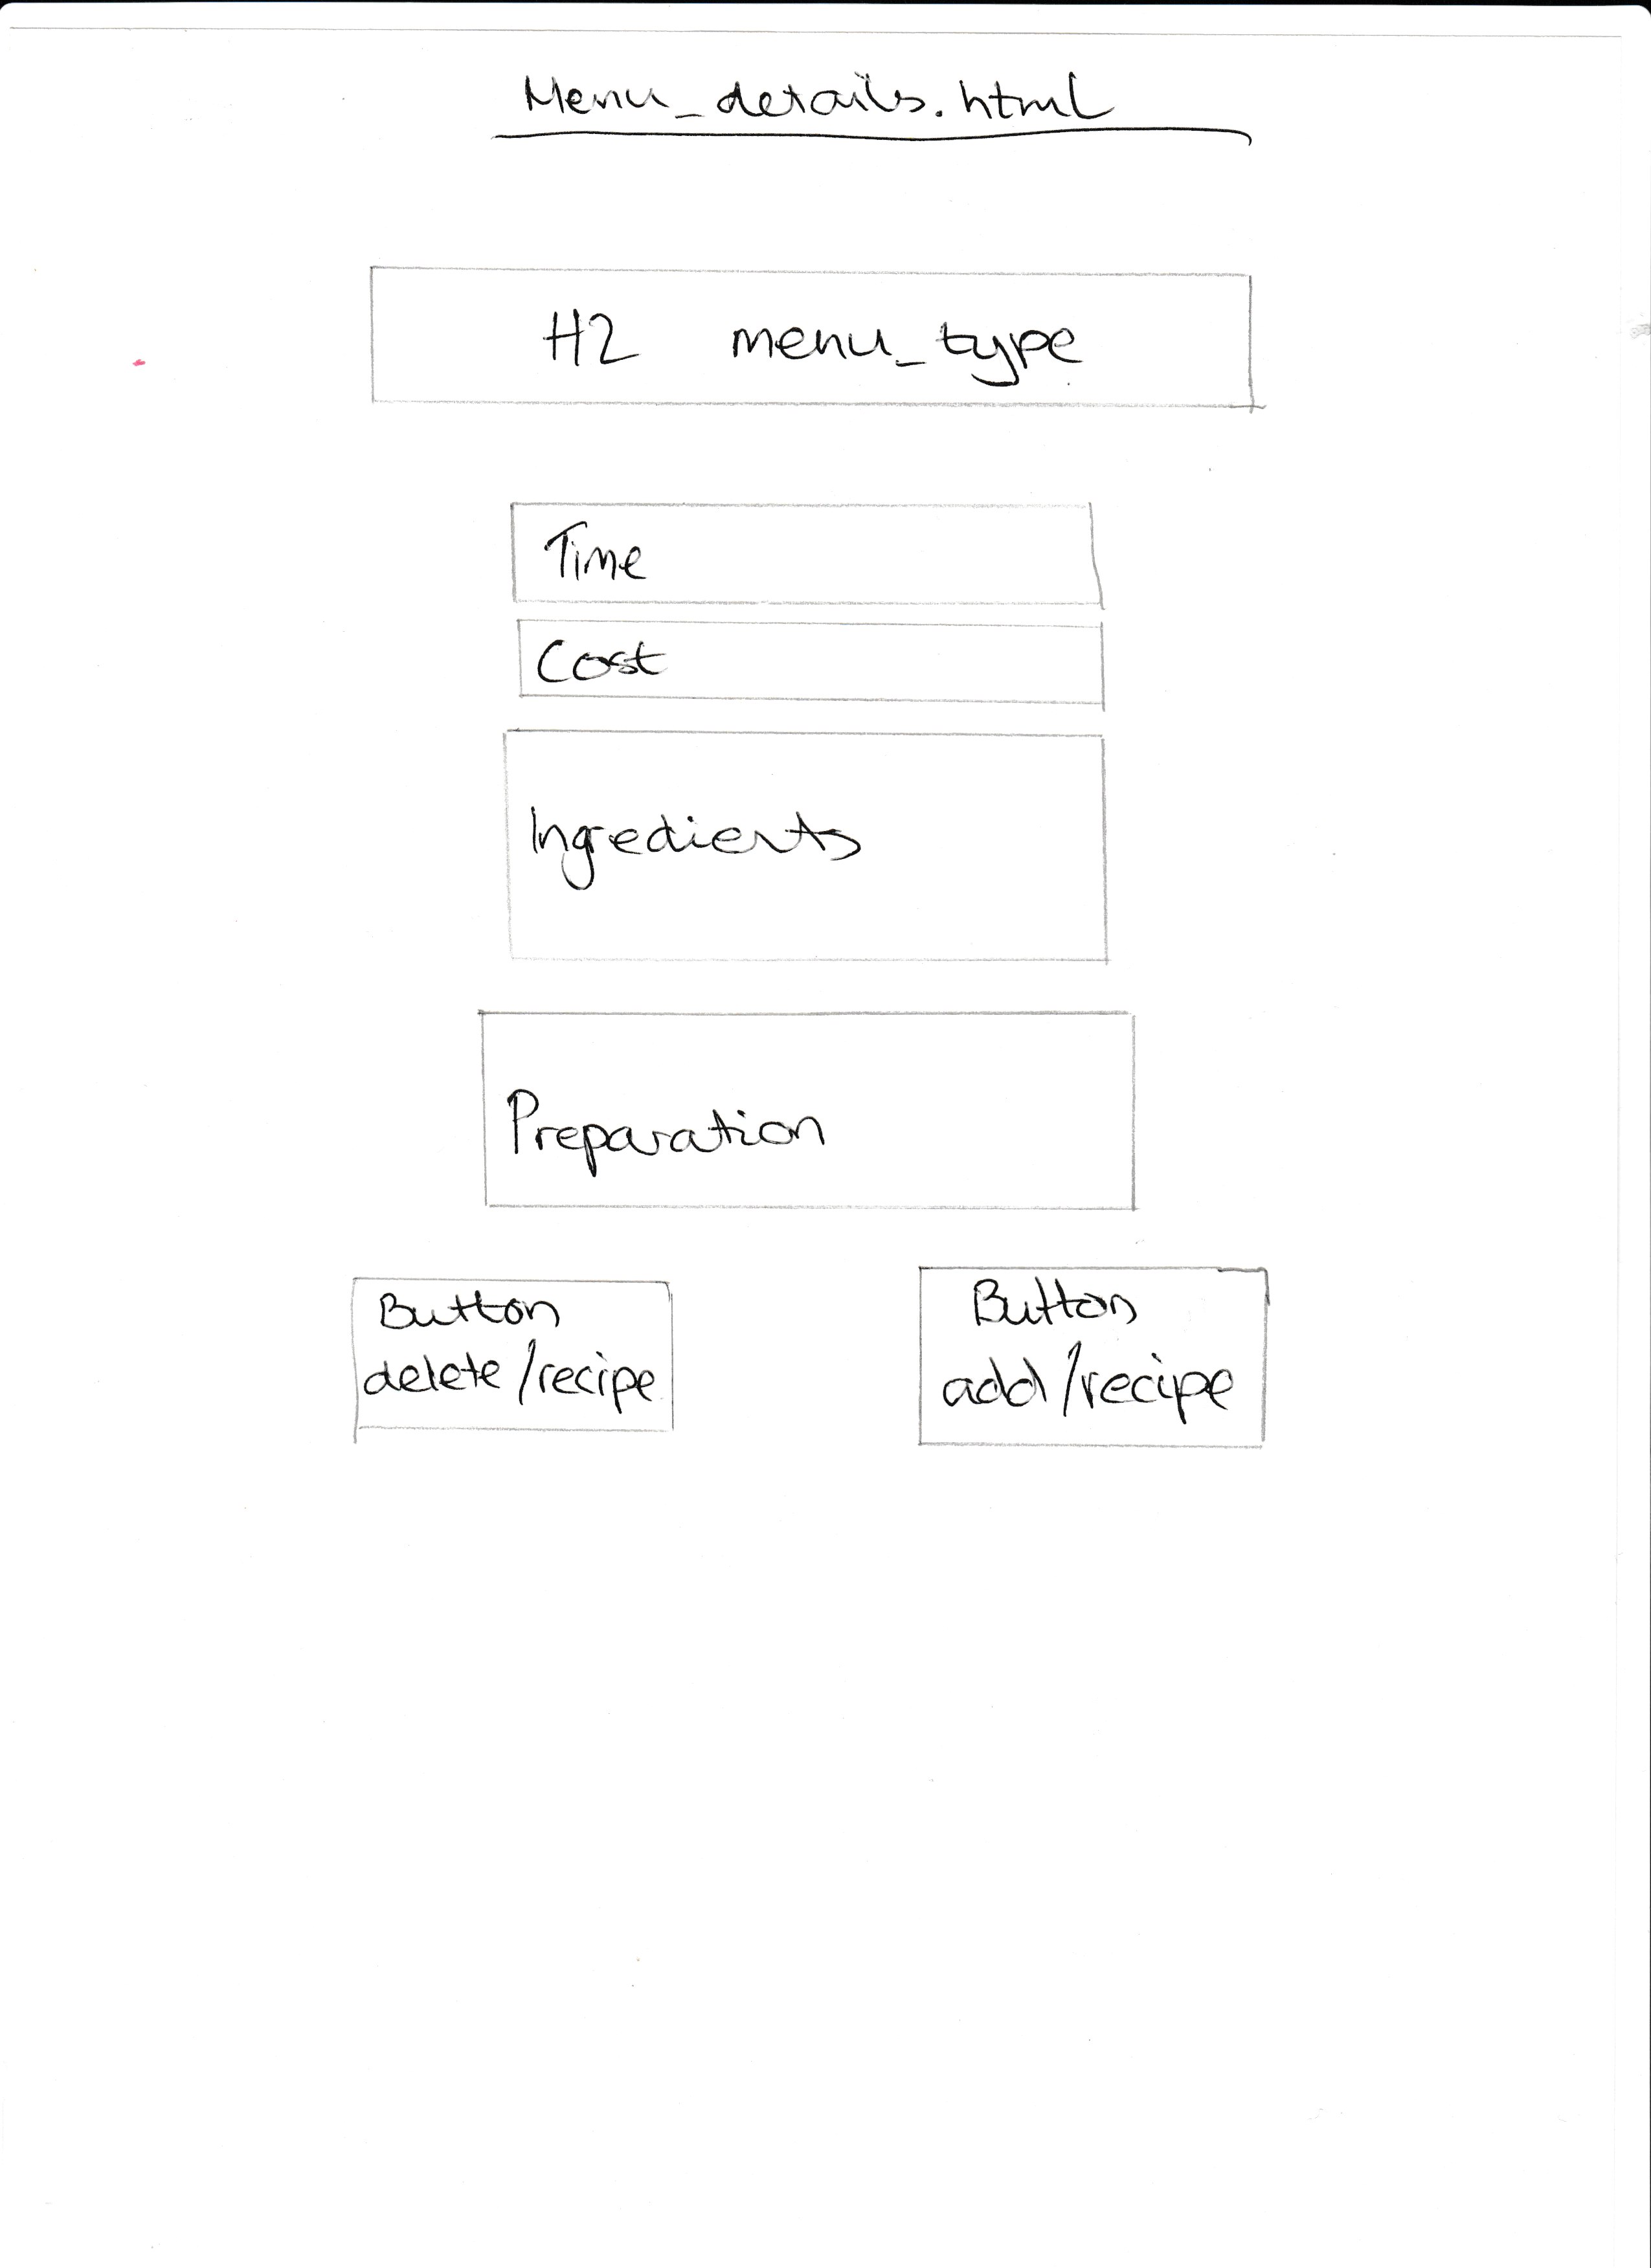 Menu_details.html
H2 menu_type
Time
Cost
Ingredients
Preparation
Button
delete/recipe
Button
add/recipe